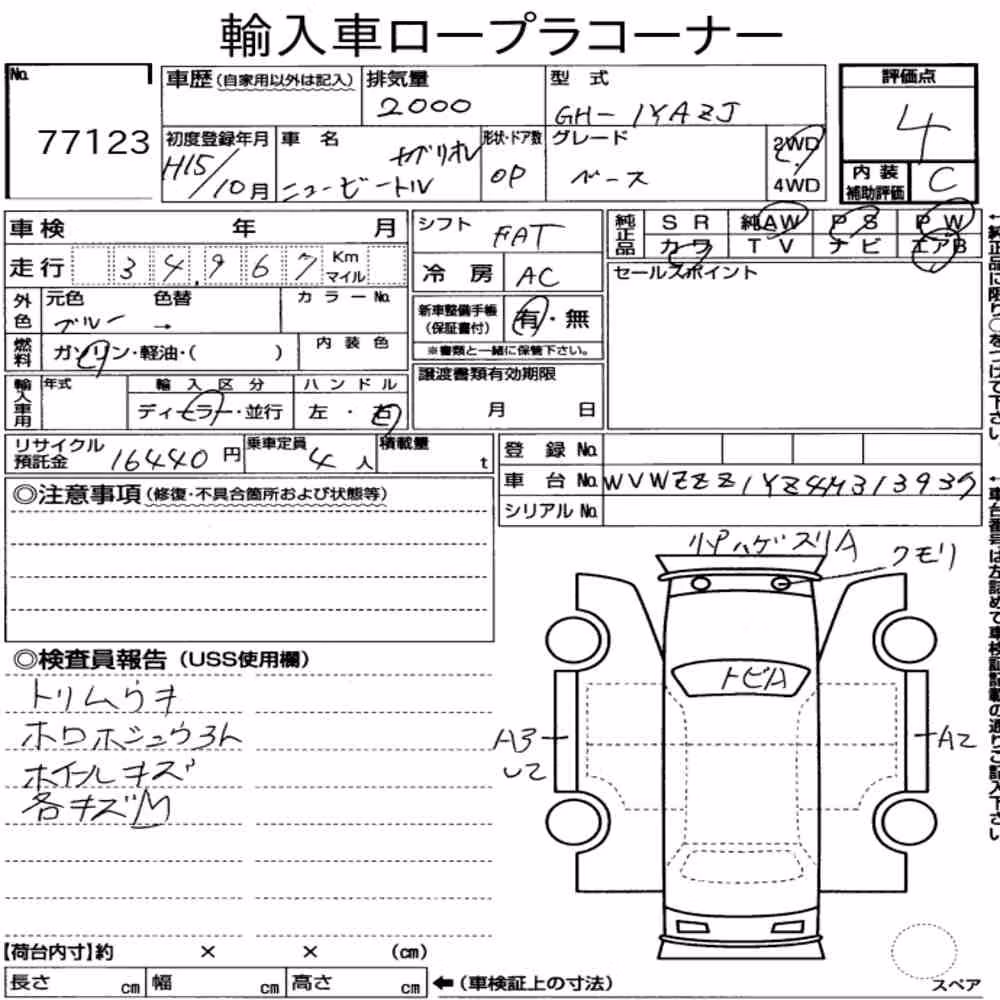 輸入車ロープラコーナー
No.
77123
車歴(自家用以外は記入)
排気量
2000
型式
GH-1YAZJ
評価点
4
初度登録年月
H15/10月
車名
ニュービートル
カブリオレ
形状・ドア数
OP
グレード
ベース
2WD
4WD
内装
補助評価
C
車検 年 月
走行 34,967 Km マイル
シフト
FAT
冷房 AC
純正品
SR 純AW PS PW
カワ TV ナビ エアB
セールスポイント
外色
元色 色替 カラーNo.
ブルー →
燃料
ガソリン・軽油・( )
内装色
新車整備手帳
(保証書付)
有・無
※書類と一緒に保管下さい。
輸入車用
年式
輸入区分
ハンドル
ディーラー・並行
左・右
譲渡書類有効期限
月 日
リサイクル
預託金
16440円
乗車定員
4人
積載量
t
登録No.
車台No. WVWZZZ1YZ4M313937
シリアルNo.
◎注意事項(修復・不具合箇所および状態等)
◎検査員報告(USS使用欄)
トリムウキ
ホロホシュウ3ん
ホイールキズ
各キズM
リPハゲスリA
クモリ
トビA
A3
U2
A2
【荷台内寸】約 × × (cm)
長さ cm 幅 cm 高さ cm
←(車検証上の寸法)
スペア
←純正品に限り○をつけて下さい
←車台番号は左詰めで車検証記載の通りご記入下さい